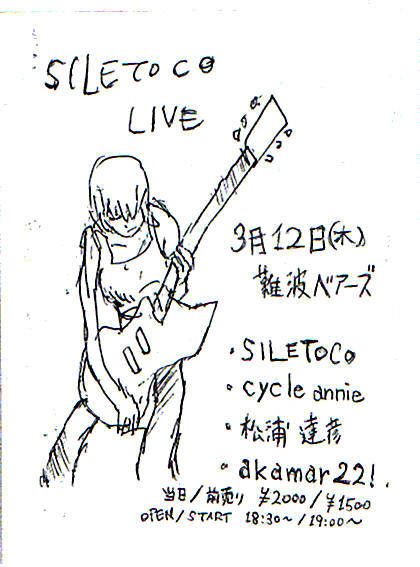 SILETOCO
LIVE
3月12日(木)
難波ベアーズ
・SILETOCO
・cycle annie
・松浦 達彦
・akamar22!
当日/前売り ¥2000/¥1500
OPEN/START 18:30〜/19:00〜